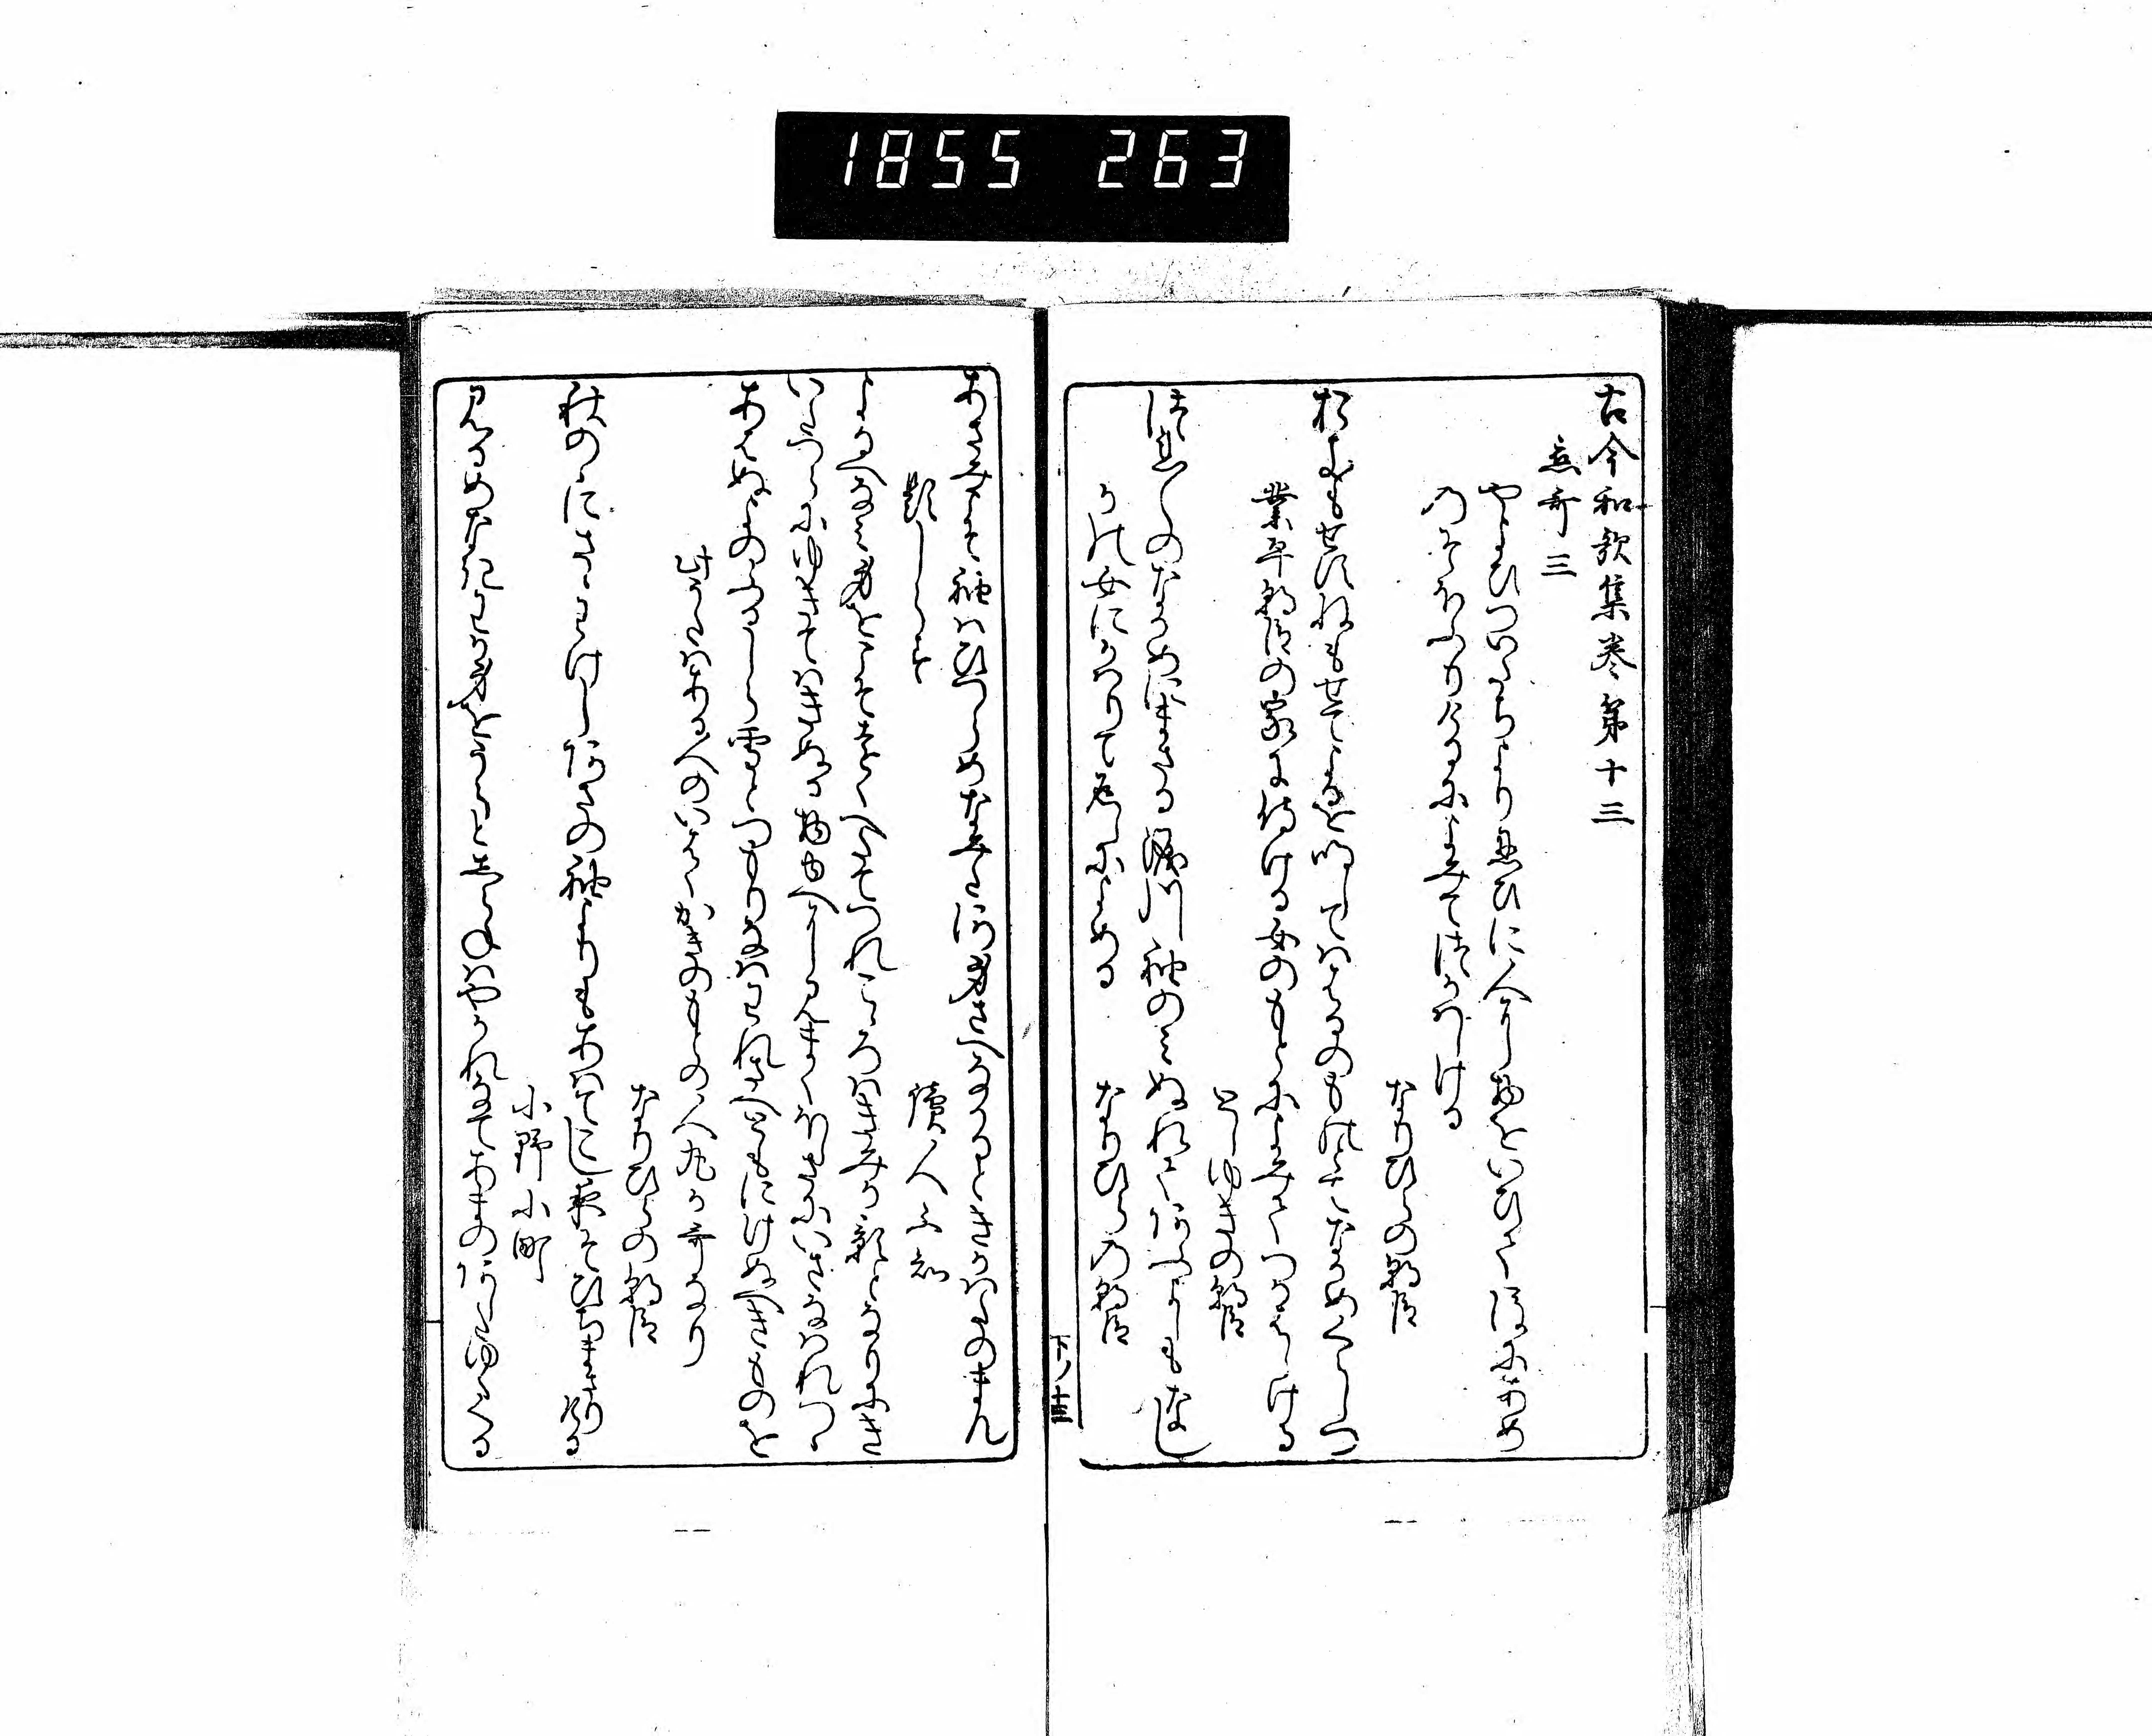 1855 263
古今和歌集巻第十三
恋哥三
やよひのついたちより忍ひに人に物をいひて後に雨
のそほふりけるによみてつかはしける
なりひらの朝臣
おきもせすねもせてよるを明しては春のものとてなかめくらしつ
業平朝臣の家に侍ける女のもとによみてつかはしける
としゆきの朝臣
つれ〱のなかめにまさる涙川袖のみぬれてあふよしもなし
かの女にかはりて返しによめる
なりひらの朝臣
あさみこそ袖はひつらめなみた河身さへなかるときかはたのまん
題しらす
読人不知
よるへなみ身をこそとをくへたてつれこゝろはきみか影となりにき
いたつらに行てはきぬる物ゆへに見まくほしさにいさなはれつゝ
あはぬよのふる白雪とつもりなはわれさへともにけぬへきものを
此うたはある人のいはくかきのもとの人丸か哥なり
なりひらの朝臣
秋のにさゝわけしあさの袖よりもあはてこし夜そひちまさりける
小野小町
見るめなきわか身をうらとしらねはやかれなてあまのあしたゆくくる